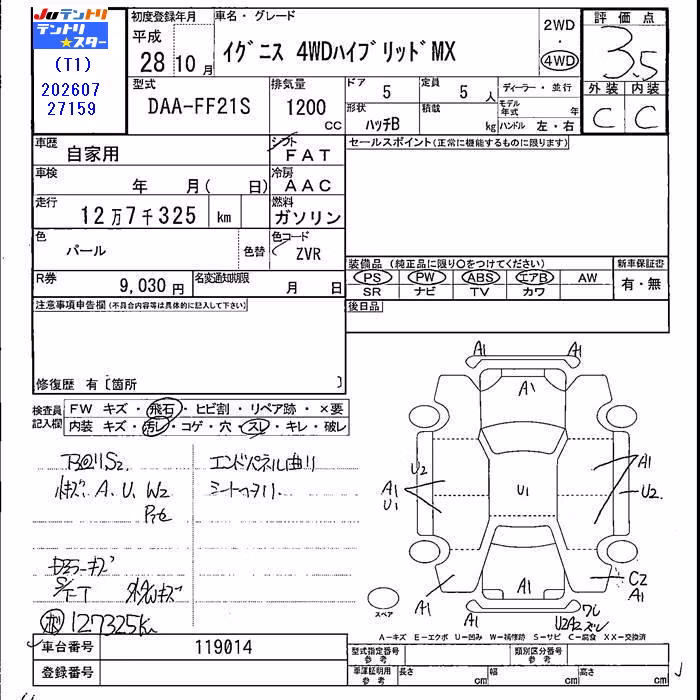 Juテントリ
テントリ
★スター
(T1)
202607
27159
初度登録年月
平成
28 10 月
車名・グレード
イグニス 4WDハイブリッドMX
2WD
・
4WD
評価点
3.5
外装 内装
C C
型式
DAA-FF21S
排気量
1200
CC
ドア
5
定員
5 人
形状
ハッチB
積載
kg
ディーラー・並行
モデル年式 年
ハンドル 左・右
車歴
自家用
シフト
FAT
セールスポイント(正常に機能するものに限ります)
車検
年 月( 日)
冷房
AAC
走行
12万7千325 km
燃料
ガソリン
色
パール
色替
色コード
ZVR
装備品 (純正品に限り○をつけてください)
PS PW ABS エアB AW
SR ナビ TV カワ
新車保証書
有・無
R券
9,030円
名変通知期限
月 日
後日品
注意事項申告欄(不具合内容等は具体的に記入して下さい)
修復歴 有〔箇所 〕
検査員記入欄
FW キズ・飛石・ヒビ割・リペア跡・×要
内装 キズ・汚レ・コゲ・穴・スレ・キレ・破レ
エンドパネル曲リ
小キズ、A、U、W2
シートヘタリ
127325Km
A1 A1
A1
U2
A1
U1
U1
A1
U2
A1
A1
C2
A1
ワレ
A1
U2A2ズレ
スペア
A-キズ E-エクボ U-凹み W-補修跡 S-サビ C-腐食 XX-交換済
車台番号
119014
登録番号
型式指定番号
参考
類別区分番号
参考
車庫証明用
参考
長さ cm 幅 cm 高さ cm